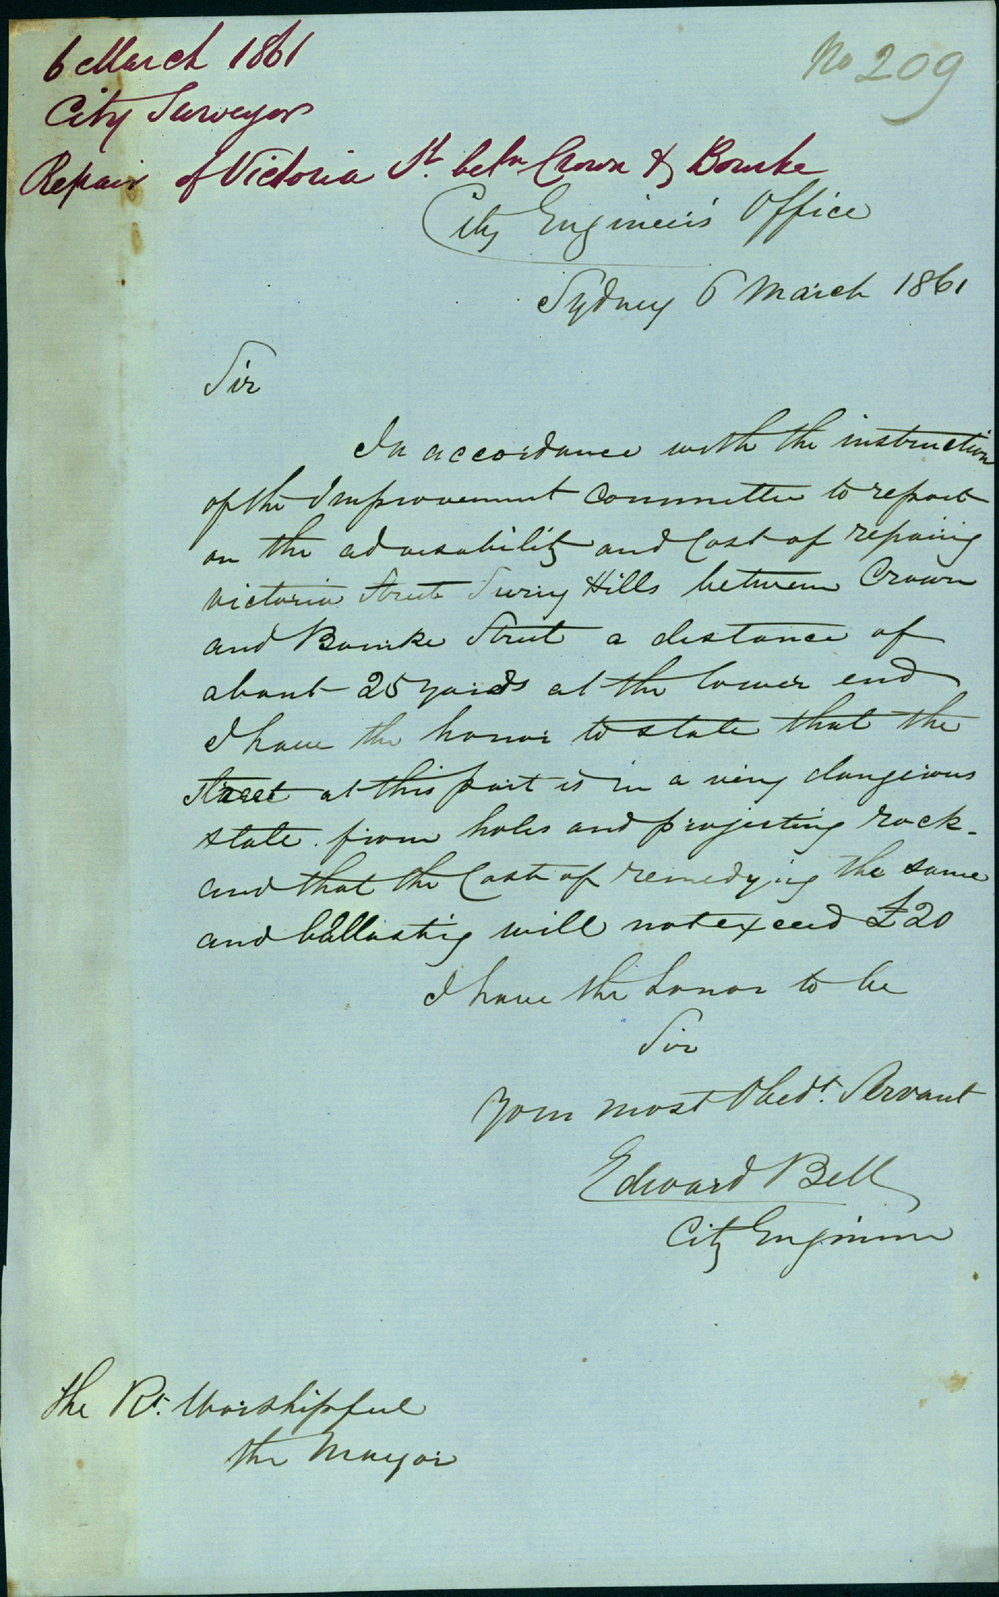 6 March 1861
No 209
City Surveyor
Repair of Victoria St. betn Crown & Bourke
City Engineer's Office
Sydney 6 March 1861
Sir
In accordance with the instruction
of the Improvement Committee to report
on the advisability and Cost of repairing
Victoria Street Surry Hills between Crown
and Bourke Street a distance of
about 25 yards at the lower end
I have the honor to state that the
Street at this part is in a very dangerous
state from holes and projecting rock -
and that the Cost of remedying the same
and ballasting will not exceed £20
I have the honor to be
Sir
Your most Obedt. Servant
Edward Bell
City Engineer
The Rt. Worshipful
the Mayor